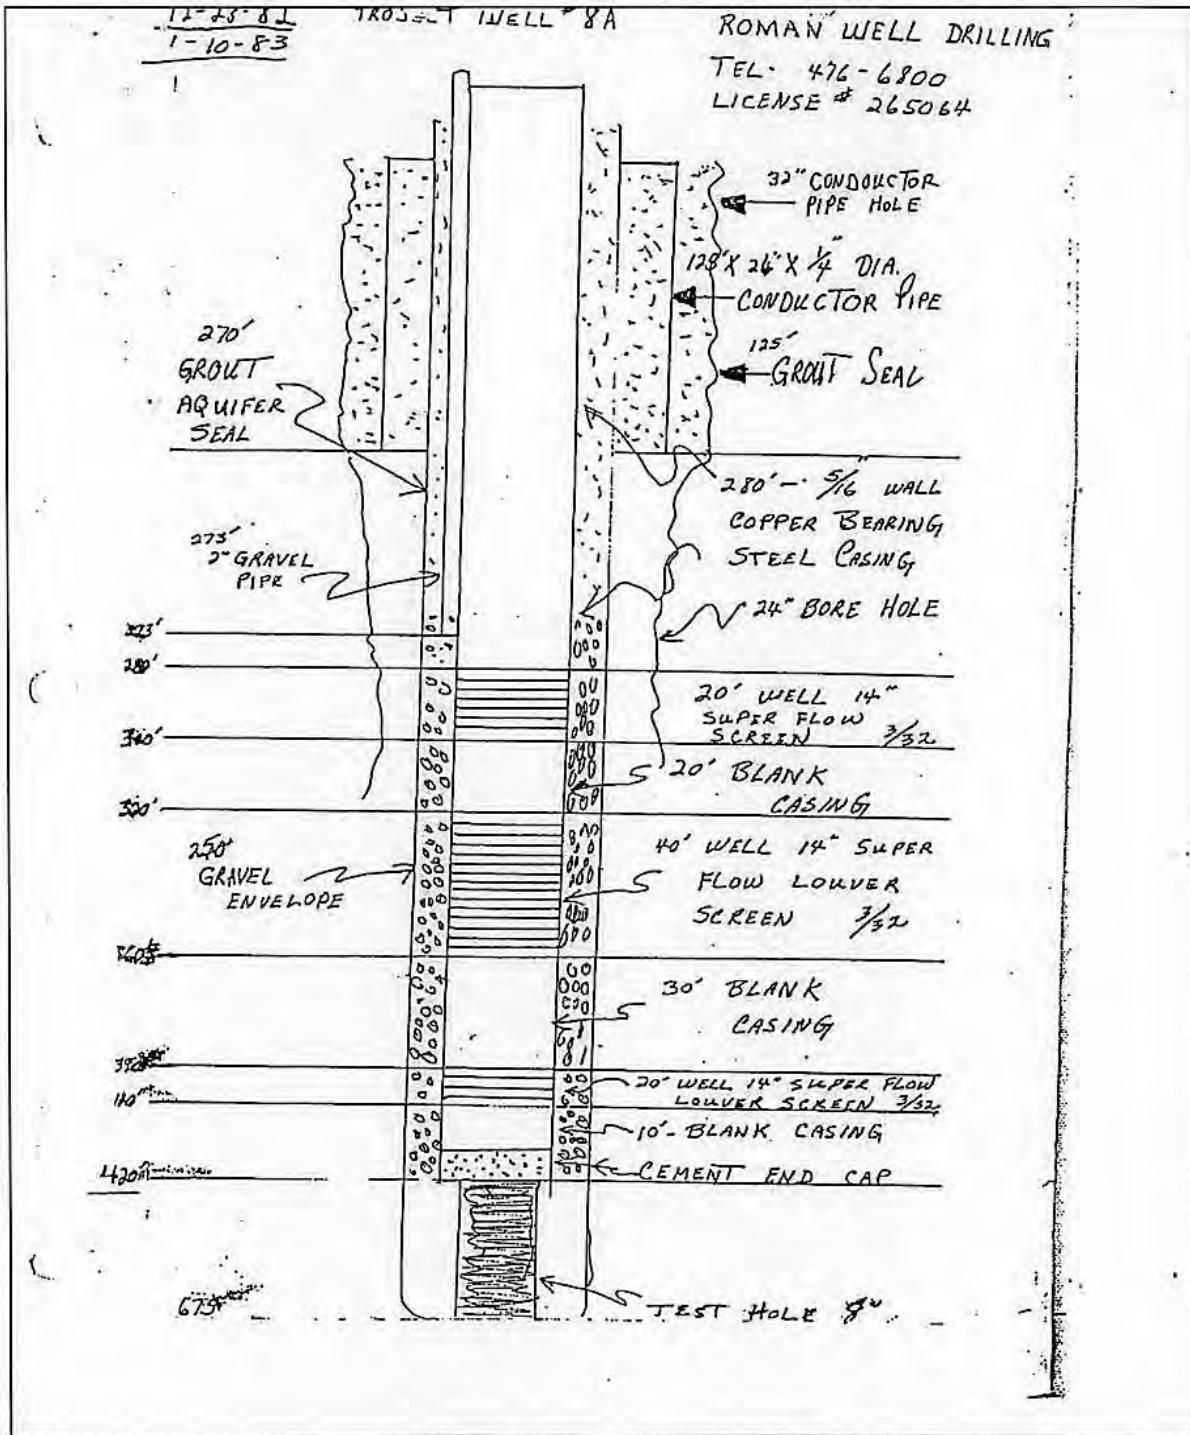 12-28-82
1-10-83
WELL # 8A
ROMAN WELL DRILLING
TEL. 476-6800
LICENSE # 265064
32" CONDOUCTOR
PIPE HOLE
X 1/4" DIA.
CONDUCTOR PIPE
125'
GROUT SEAL
270'
GROUT
AQUIFER
SEAL
280' - 5/16" WALL
COPPER BEARING
STEEL CASING
273'
2" GRAVEL
PIPE
24" BORE HOLE
280'
20' WELL 14"
SUPER FLOW
SCREEN 3/32
20' BLANK
CASING
250'
GRAVEL
ENVELOPE
40' WELL 14" SUPER
FLOW LOUVER
SCREEN 3/32
30' BLANK
CASING
20' WELL 14" SUPER FLOW
LOUVER SCREEN 3/32
10'- BLANK CASING
420'
CEMENT END CAP
675'
TEST HOLE 8"